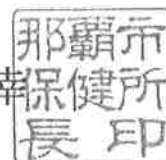 幸
那覇市
保健所
長印